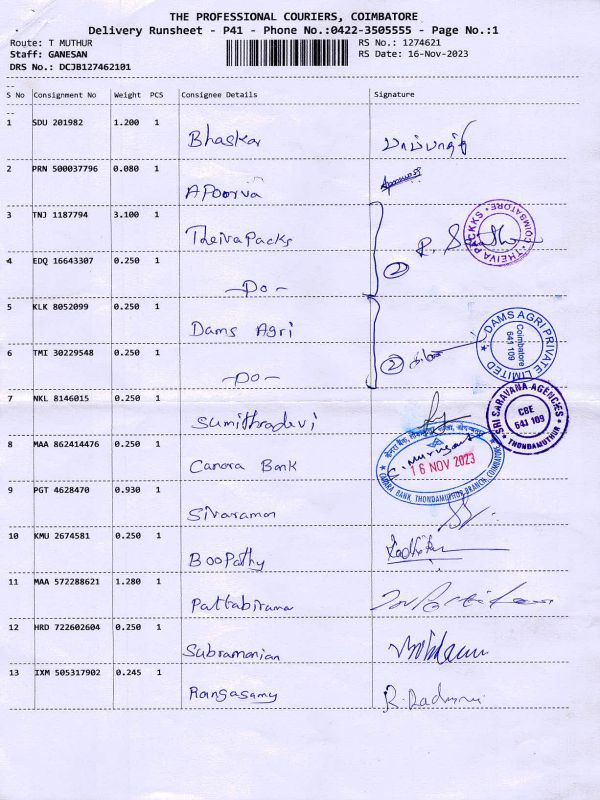 THE PROFESSIONAL COURIERS, COIMBATORE
Delivery Runsheet - P41 - Phone No.:0422-3505555 - Page No.:1
Route: T MUTHUR RS No.: 1274621
Staff: GANESAN RS Date: 16-Nov-2023
DRS No.: DCJB127462101
S No Consignment No Weight PCS Consignee Details Signature
1 SDU 201982 1.200 1 Bhaskar
2 PRN 500037796 0.080 1 APoorva
3 TNJ 1187794 3.100 1 TheivaPacks
THEIVA PACKKS * COIMBATORE *
4 EDQ 16643307 0.250 1 -Do- 2
5 KLK 8052099 0.250 1 Dams Agri
DAMS AGRI PRIVATE LIMITED
Coimbatore
641 109
6 TMI 30229548 0.250 1 -Do- 2
7 NKL 8146015 0.250 1 Sumithradevi
SRI SARAVANA AGENCIES
CBE
641 109
THONDAMUTHUR
8 MAA 862414476 0.250 1 Canara Bank
16 NOV 2023
CANARA BANK, THONDAMUTHUR BRANCH, COIMBATORE
9 PGT 4628470 0.930 1 Sivaraman
10 KMU 2674581 0.250 1 BooPathy
11 MAA 572288621 1.280 1 Pattabirama
12 HRD 722602604 0.250 1 Subramanian
13 IXM 505317902 0.245 1 Rangasamy